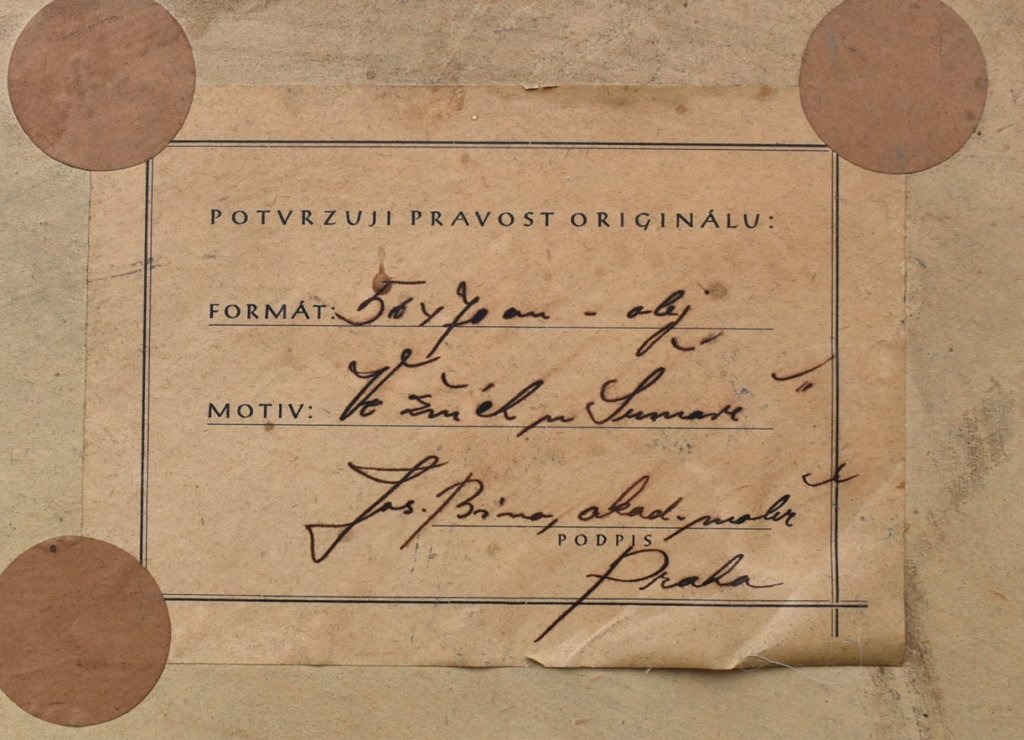 POTVRZUJI PRAVOST ORIGINÁLU:
FORMÁT: 50 x 70 cm - olej
MOTIV: Ve žních na Šumavě"
Jos. Bína, akad. malíř
PODPIS
Praha